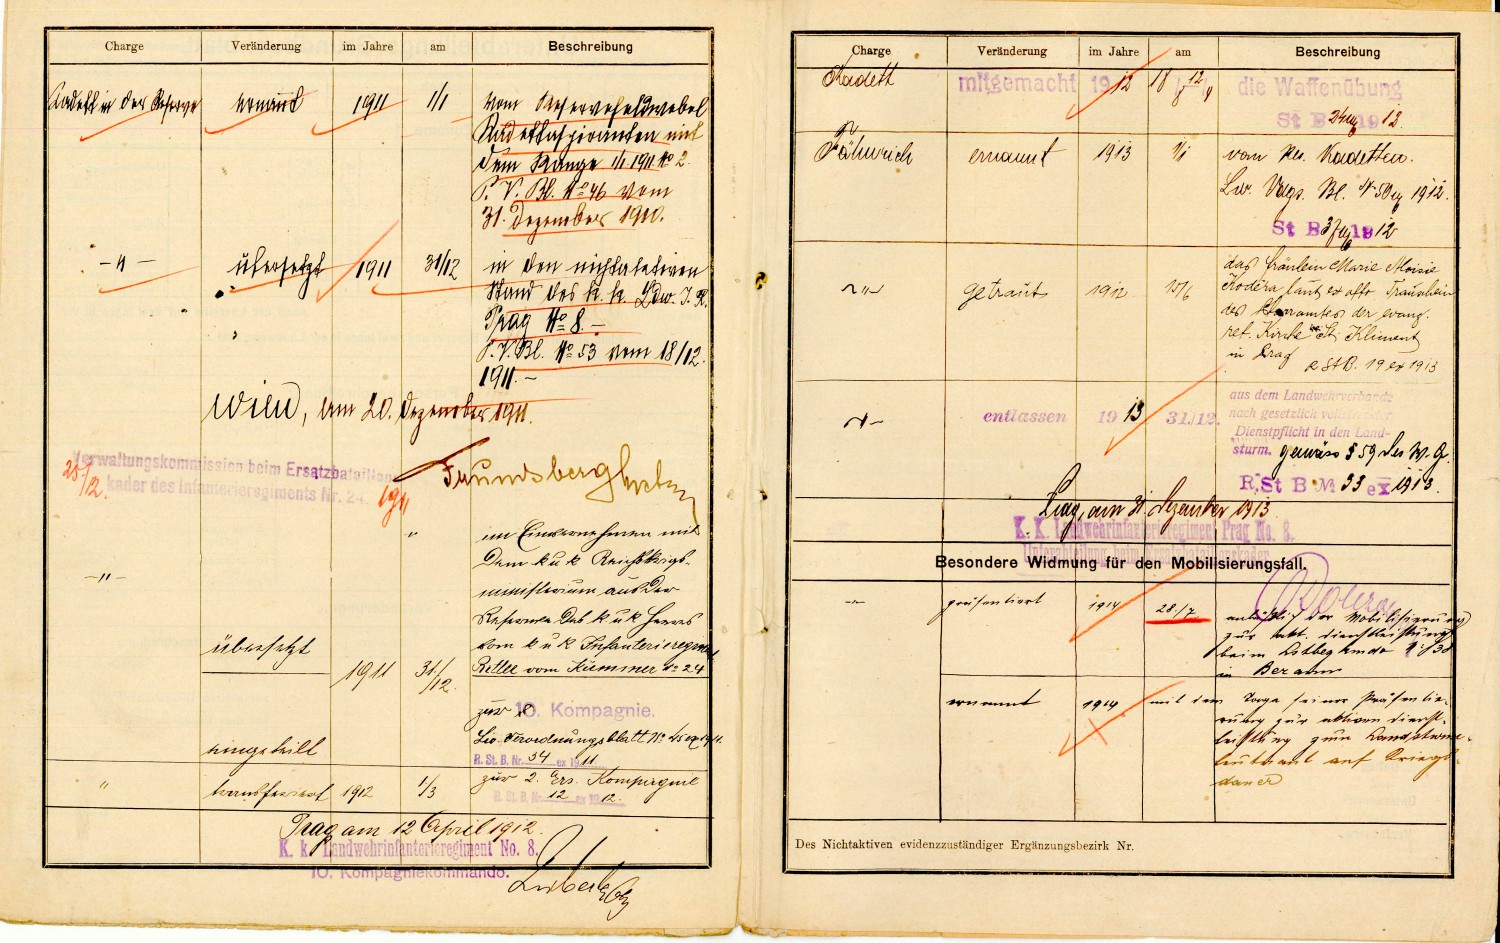 Charge Veränderung im Jahre am Beschreibung
Kadett in der Reserve ernannt 1911 1/1 vom Reservefeldwebel
Kadettaspiranten mit
dem Range 1/1 1911 No 2.
P. V. Bl. No 46 vom
31. Dezember 1910.
-"- übersetzt 1911 31/12 in den nichtaktiven
Stand des k. k. Ldw. I. R.
Prag No 8. -
P. V. Bl. No 53 vom 18/12.
1911. -
Wien, am 20. Dezember 1911.
Verwaltungskommission beim Ersatzbataillons-
kader des Infanterieregiments Nr. 24.
25/12. 1911
"
-"- im Einvernehmen mit
dem k u k Reichskriegs-
ministerium aus der
Reserve des k u k Heeres
vom k u k Infanterieregiment
übersetzt 1911 31./12. Ritter vom Kummer No 24
eingeteilt zur 10. Kompagnie.
Verordnungsblatt No 45 ex 1911.
R. St. B. Nr. 54 ex 1911
" transferiert 1912 1/3 zur 2. Ers. Kompagnie
R. St. B. Nr. 12 ex 1912.
Prag am 12 April 1912.
K. k. Landwehrinfanterieregiment No. 8.
10. Kompagniekommando.
Charge Veränderung im Jahre am Beschreibung
Kadett mitgemacht 1912 die Waffenübung
St B 24 ex 1912.
Fähnrich ernannt 1913 1/1 vom Res. Kadetten.
Lw. Vdgs. Bl. N 50 ex 1912.
St B 37 ex 1912
-"- getraut 1912. 15/6 das Fräulein Marie Aloisie
Kodéra laut ex offo Trauschein
des Pfarramtes der evang.
ref. Kirche St. Kliment
in Prag
R St B. 19 ex 1913
-"- entlassen 1913 31./12. aus dem Landwehrverbande
nach gesetzlich vollstreckter
Dienstpflicht in den Land-
sturm. gemäss § 59 des W. G.
R. St B No 33 ex 1913.
Prag, am 31. Dezember 1913
K. K. Landwehrinfanterieregiment Prag No. 8.
Unterabteilung beim Ersatzbataillonskader
Besondere Widmung für den Mobilisierungsfall.
-"- präsentiert 1914 28./7 anläßlich der Mobilisierung
zur akt. Dienstleistung
beim Lstbezkmdo No 38
in Beraun
ernannt 1914 mit dem Tage seiner Präsentie-
rung zur aktiven Dienst-
leistung zum Landsturm-
leutnant auf Kriegs-
dauer
Des Nichtaktiven evidenzzuständiger Ergänzungsbezirk Nr.